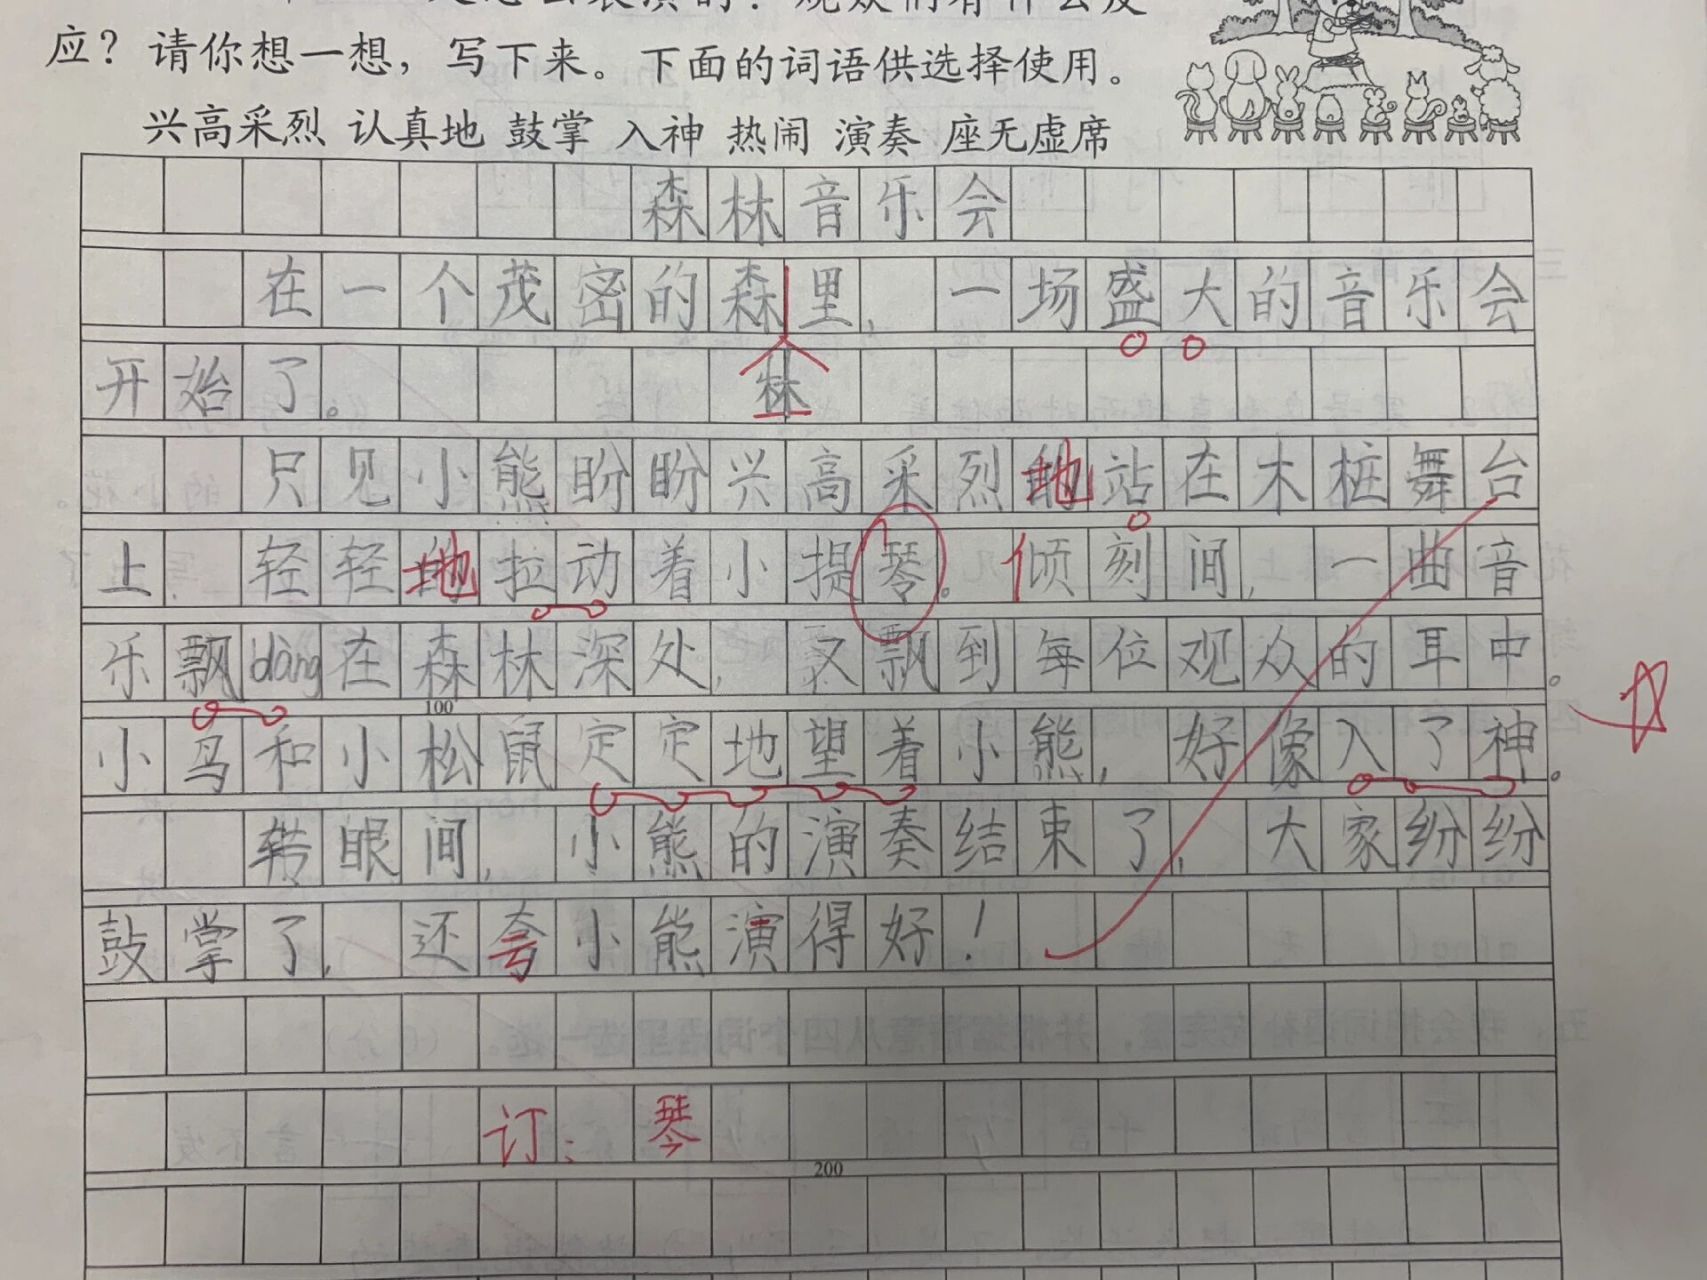 应？请你想一想，写下来。下面的词语供选择使用。
兴高采烈 认真地 鼓掌 入神 热闹 演奏 座无虚席
森林音乐会
在一个茂密的森里，一场盛大的音乐会
林
开始了。
只见小熊盼盼兴高采烈地站在木桩舞台
上 轻轻地拉动着小提琴。倾刻间，一曲音
乐飘dàng在森林深处，又飘到每位观众的耳中。
100
小鸟和小松鼠定定地望着小熊，好像入了神。
转眼间，小熊的演奏结束了，大家纷纷
鼓掌了，还夸小熊演得好！
订：琴
200